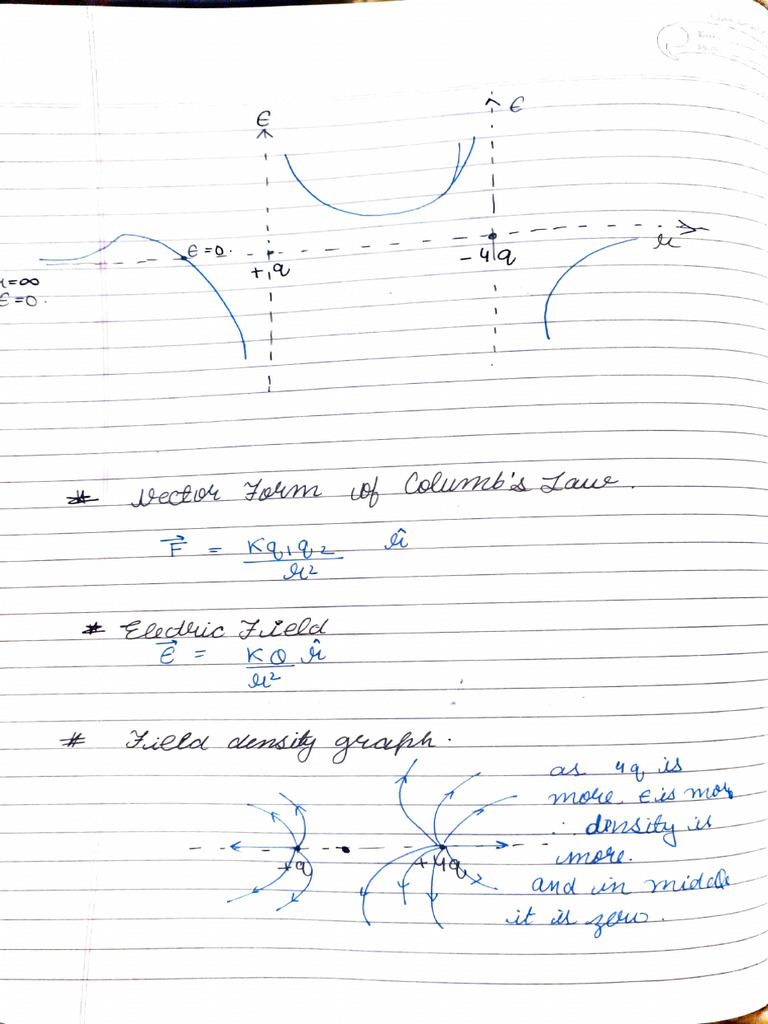 E
E
E=0.
r
+q
-4q
r=∞
E=0.
# Vector Form of Columb's Law.
F⃗ = Kq₁q₂ / r² r̂
# Electric Field
E⃗ = KQ / r² r̂
# Field density graph.
as 4q is
more, E is mor
∴ density is
more.
+q
+4q
and in middle
it is zero.